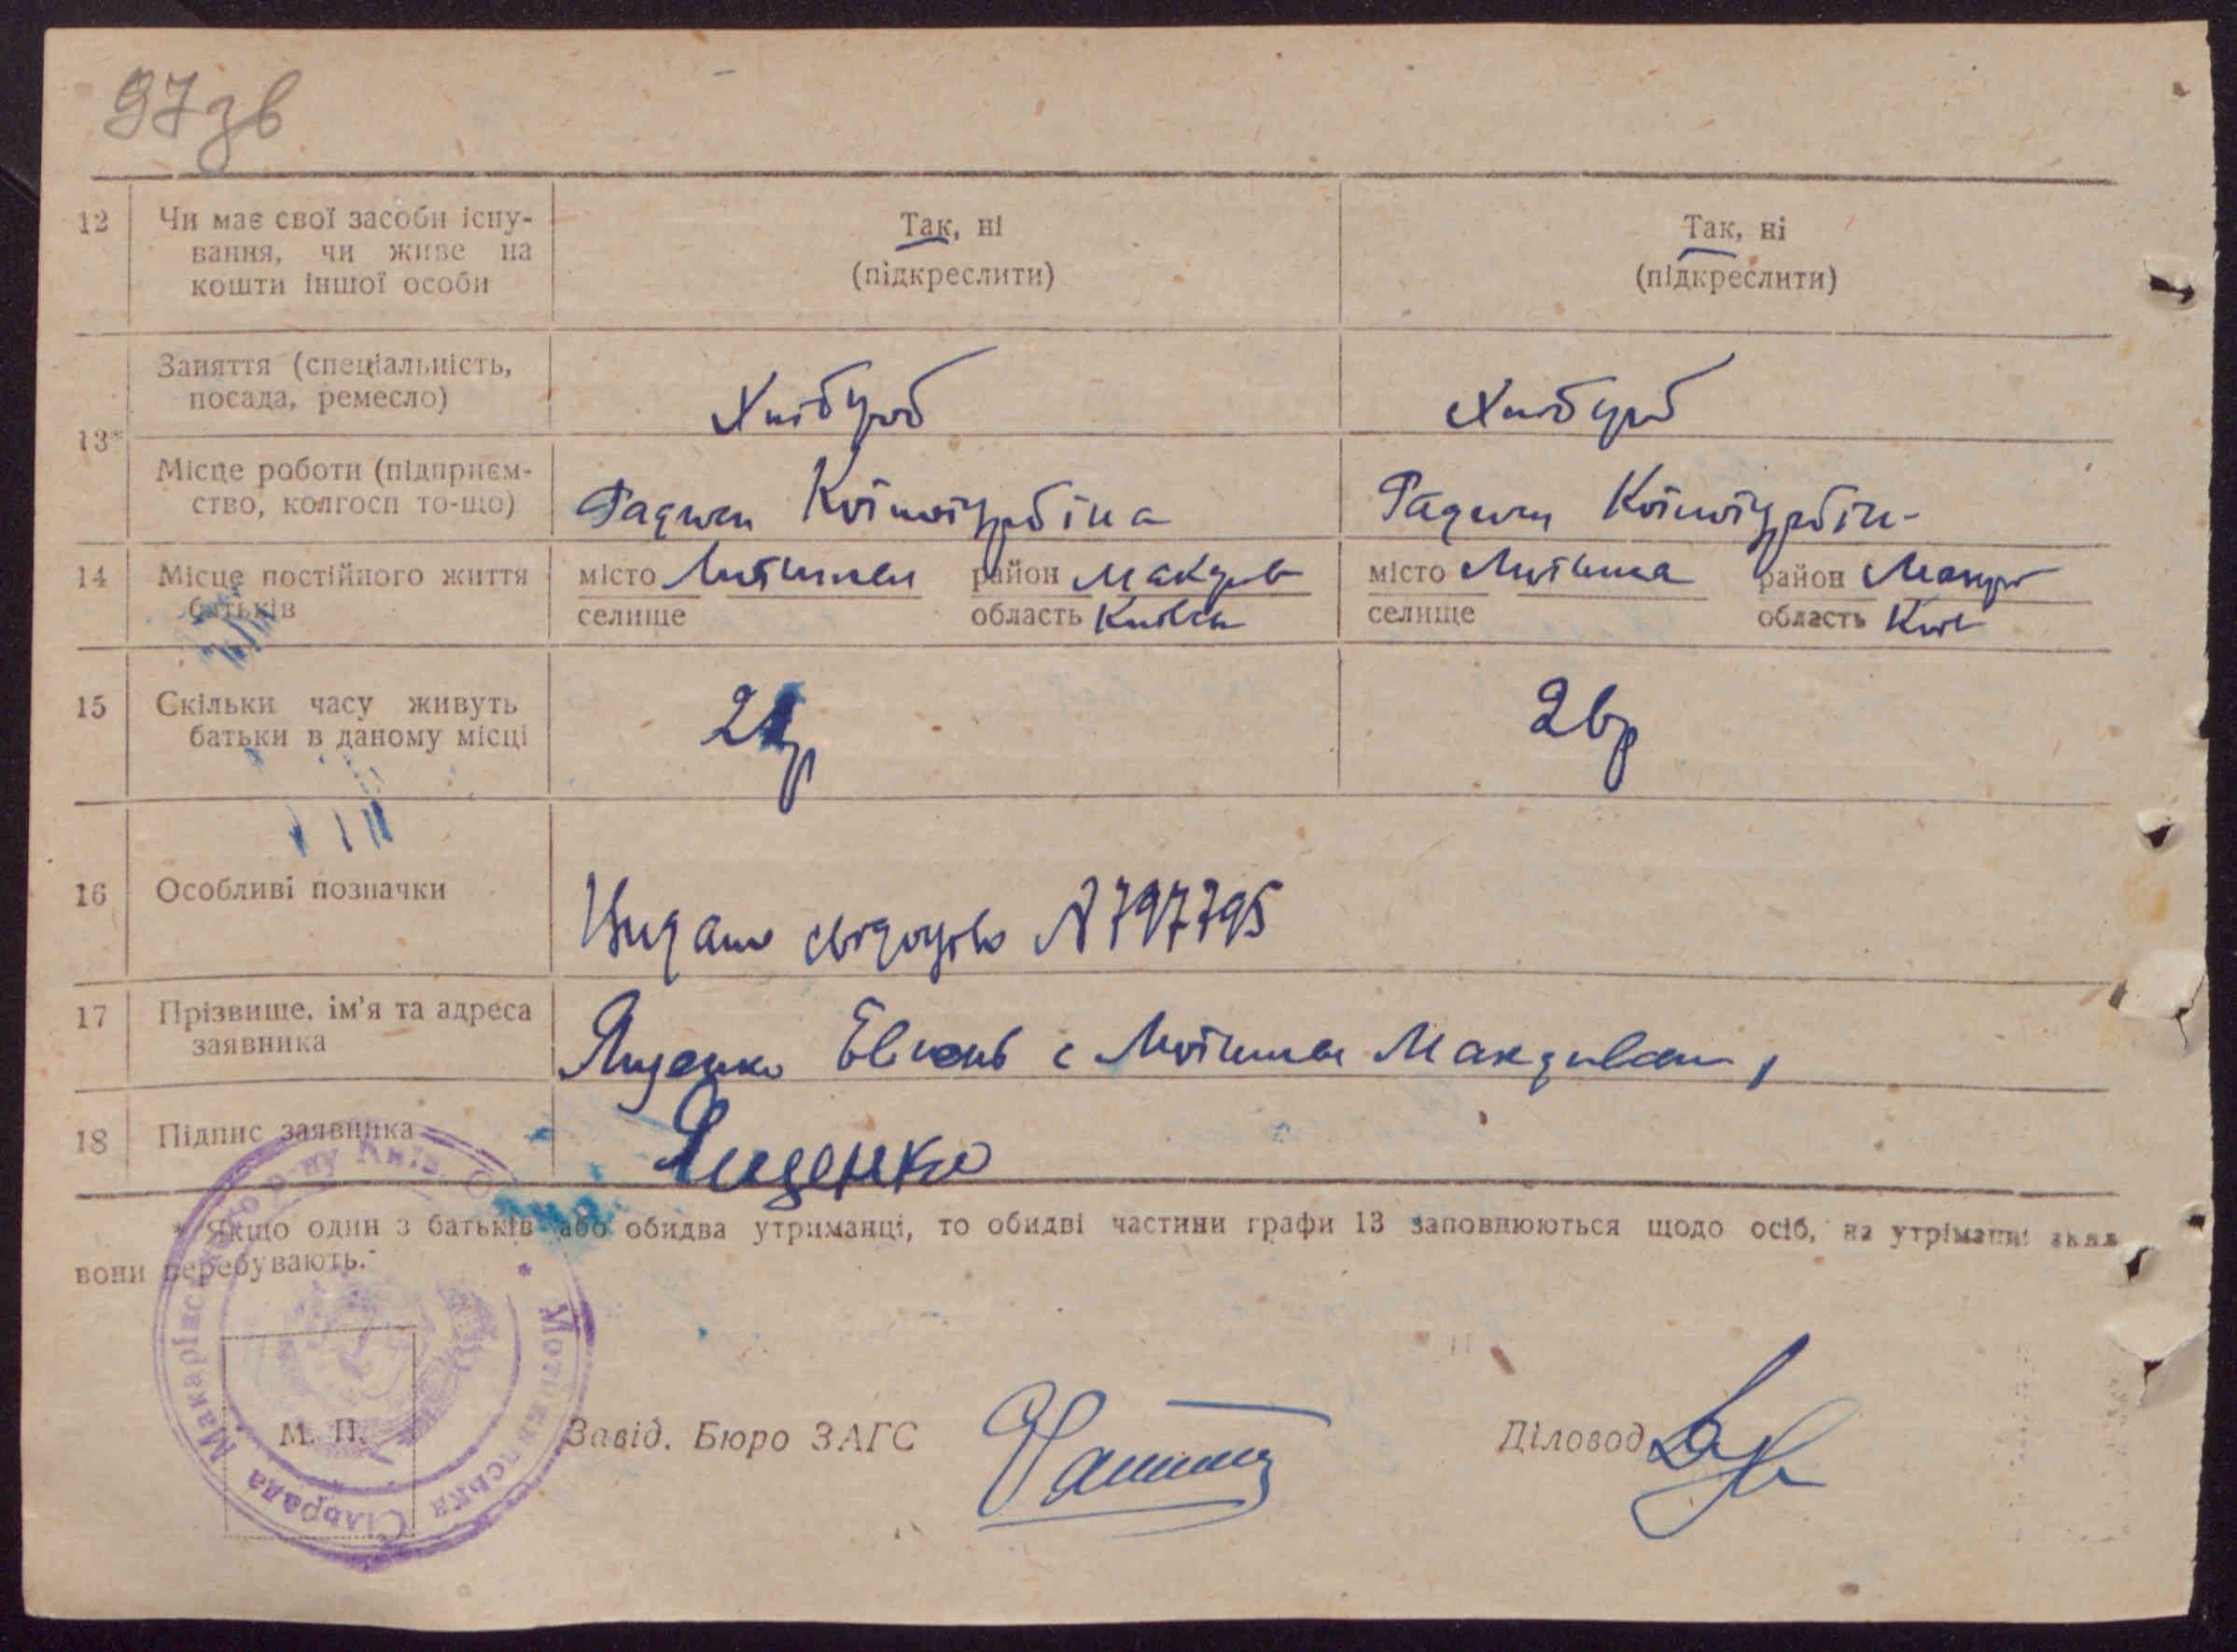 97зв
12 Чи має свої засоби існу-
вання, чи живе на
кошти іншої особи
Так, ні
(підкреслити)
Так, ні
(підкреслити)
13*
Заняття (спеціальність,
посада, ремесло)
Хлібороб
Хлібороб
Місце роботи (підприєм-
ство, колгосп то-що)
14 Місце постійного життя
батьків
місто
район Макарів
селище
область Київськ
місто
район Макарів
селище
область Київ
15 Скільки часу живуть
батьки в даному місці
26р
16 Особливі позначки
Видано свідоцтво N 797795
17 Прізвище, ім'я та адреса
заявника
Ященко с Мотижин
18 Підпис заявника
Ященко
* Якщо один з батьків або обидва утриманці, то обидві частини графи 13 заповнюються щодо осіб, на утріманні яких
вони перебувають.
Мотижинська Сільрада Макарівського р-ну Київ.
М. П.
Завід. Бюро ЗАГС
Діловод